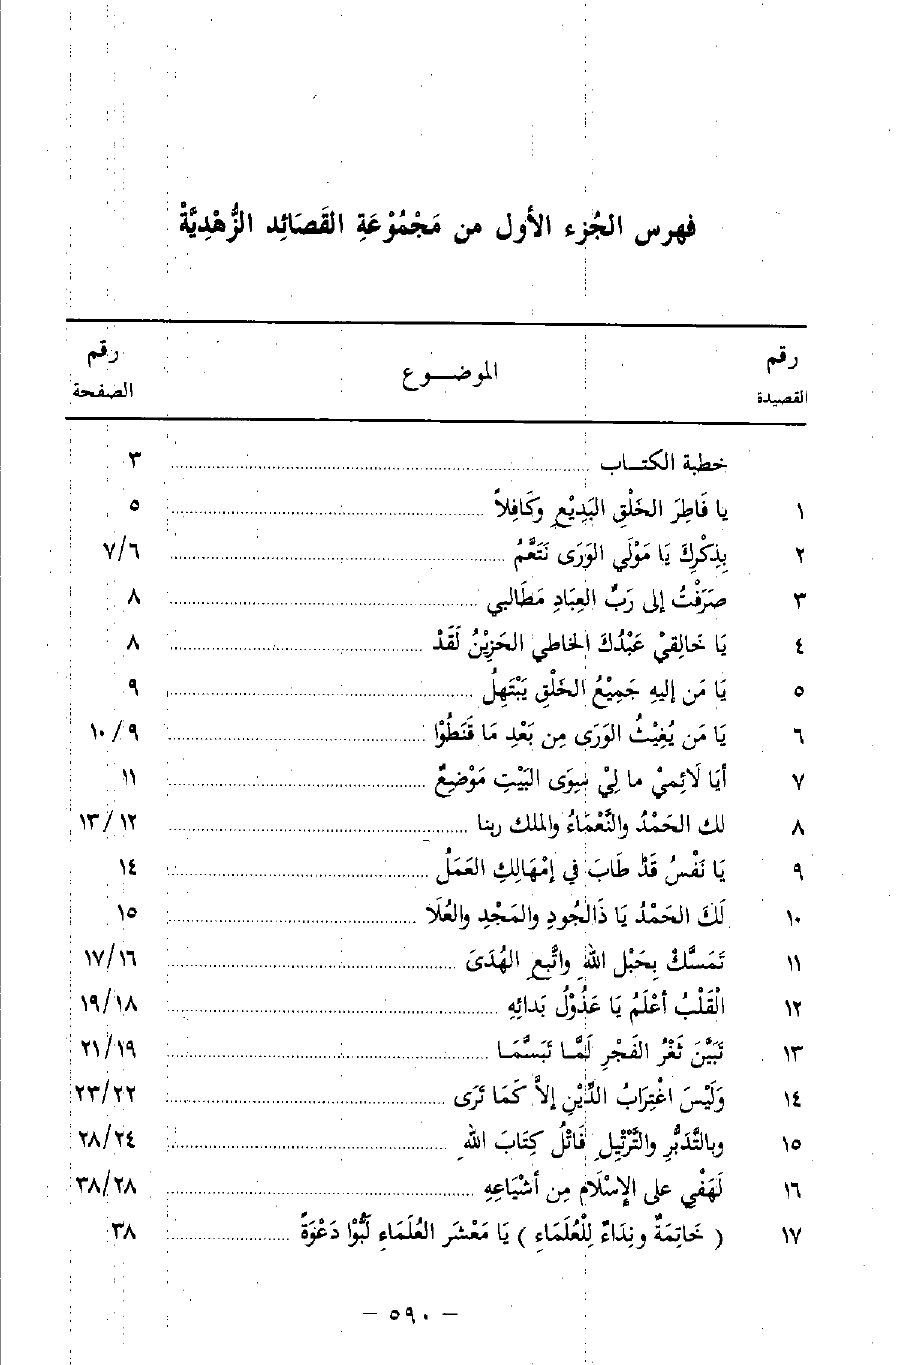 فهرس الجُزء الأول من مَجْمُوْعَةِ القَصَائِد الزُّهْدِيَّةْ
رقم القصيدة الموضــوع رقم الصفحة
خطبة الكتــاب ٣
١ يا فَاطِرَ الخَلْقِ البَدِيْعِ وكَافِلاً ٥
٢ بِذِكْرِكَ يَا مَوْلَي الوَرَى نَتَنَعَّمُ ٧/٦
٣ صَرَفْتُ إلى رَبِّ العِبَادِ مَطَالبي ٨
٤ يَا خَالِقيْ عَبْدُكَ الخاطي الحَزِيْنُ لَقَدْ ٨
٥ يَا مَن إليهِ جَمِيْعُ الخَلْقِ يَبْتَهِلُ ٩
٦ يَا مَن يُغِيْثُ الوَرَى مِن بَعْدِ مَا قَنَطُوْا ١٠/٩
٧ أيَا لَائِميْ ما لِيْ سِوَى البَيْتِ مَوْضِعٌ ١١
٨ لك الحَمْدُ والنَّعْمَاءُ والملك ربنا ١٣/١٢
٩ يَا نَفْسُ قَدْ طَابَ في إمْهَالِكِ العَمَلُ ١٤
١٠ لَكَ الحَمْدُ يَا ذَالجُودِ والمَجْدِ والعُلَا ١٥
١١ تَمَسَّكْ بِحَبْلِ اللهِ واتَّبِعِ الهُدَىَ ١٧/١٦
١٢ الْقَلْبُ أعْلَمُ يَا عَذُوْلُ بَدائِهِ ١٩/١٨
١٣ تَبَيَّنَ ثَغْرُ الفَجْرِ لَمَّـا تَبَسَّمَـا ٢١/١٩
١٤ وَلَيْسَ اغْتِرَابُ الدِّيْنِ إلاَّ كَمَا تَرَى ٢٣/٢٢
١٥ وبالتَّدَبُّرِ والتَّرْتِيْلِ فَاتْلُ كِتَابَ اللهِ ٢٨/٢٤
١٦ لَهَفْي على الإسْلَامِ مِن أشْيَاعِهِ ٣٨/٢٨
١٧ ( خَاتِمَةٌ ونِدَاءٌ لِلْعُلَمَاءِ ) يَا مَعْشَر العُلَمَاءِ لَبُّوْا دَعْوَةً ٣٨
– ٥٩٠ –